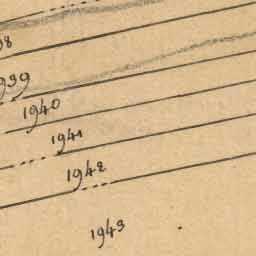 38
1939
1940
1941
1942
1943